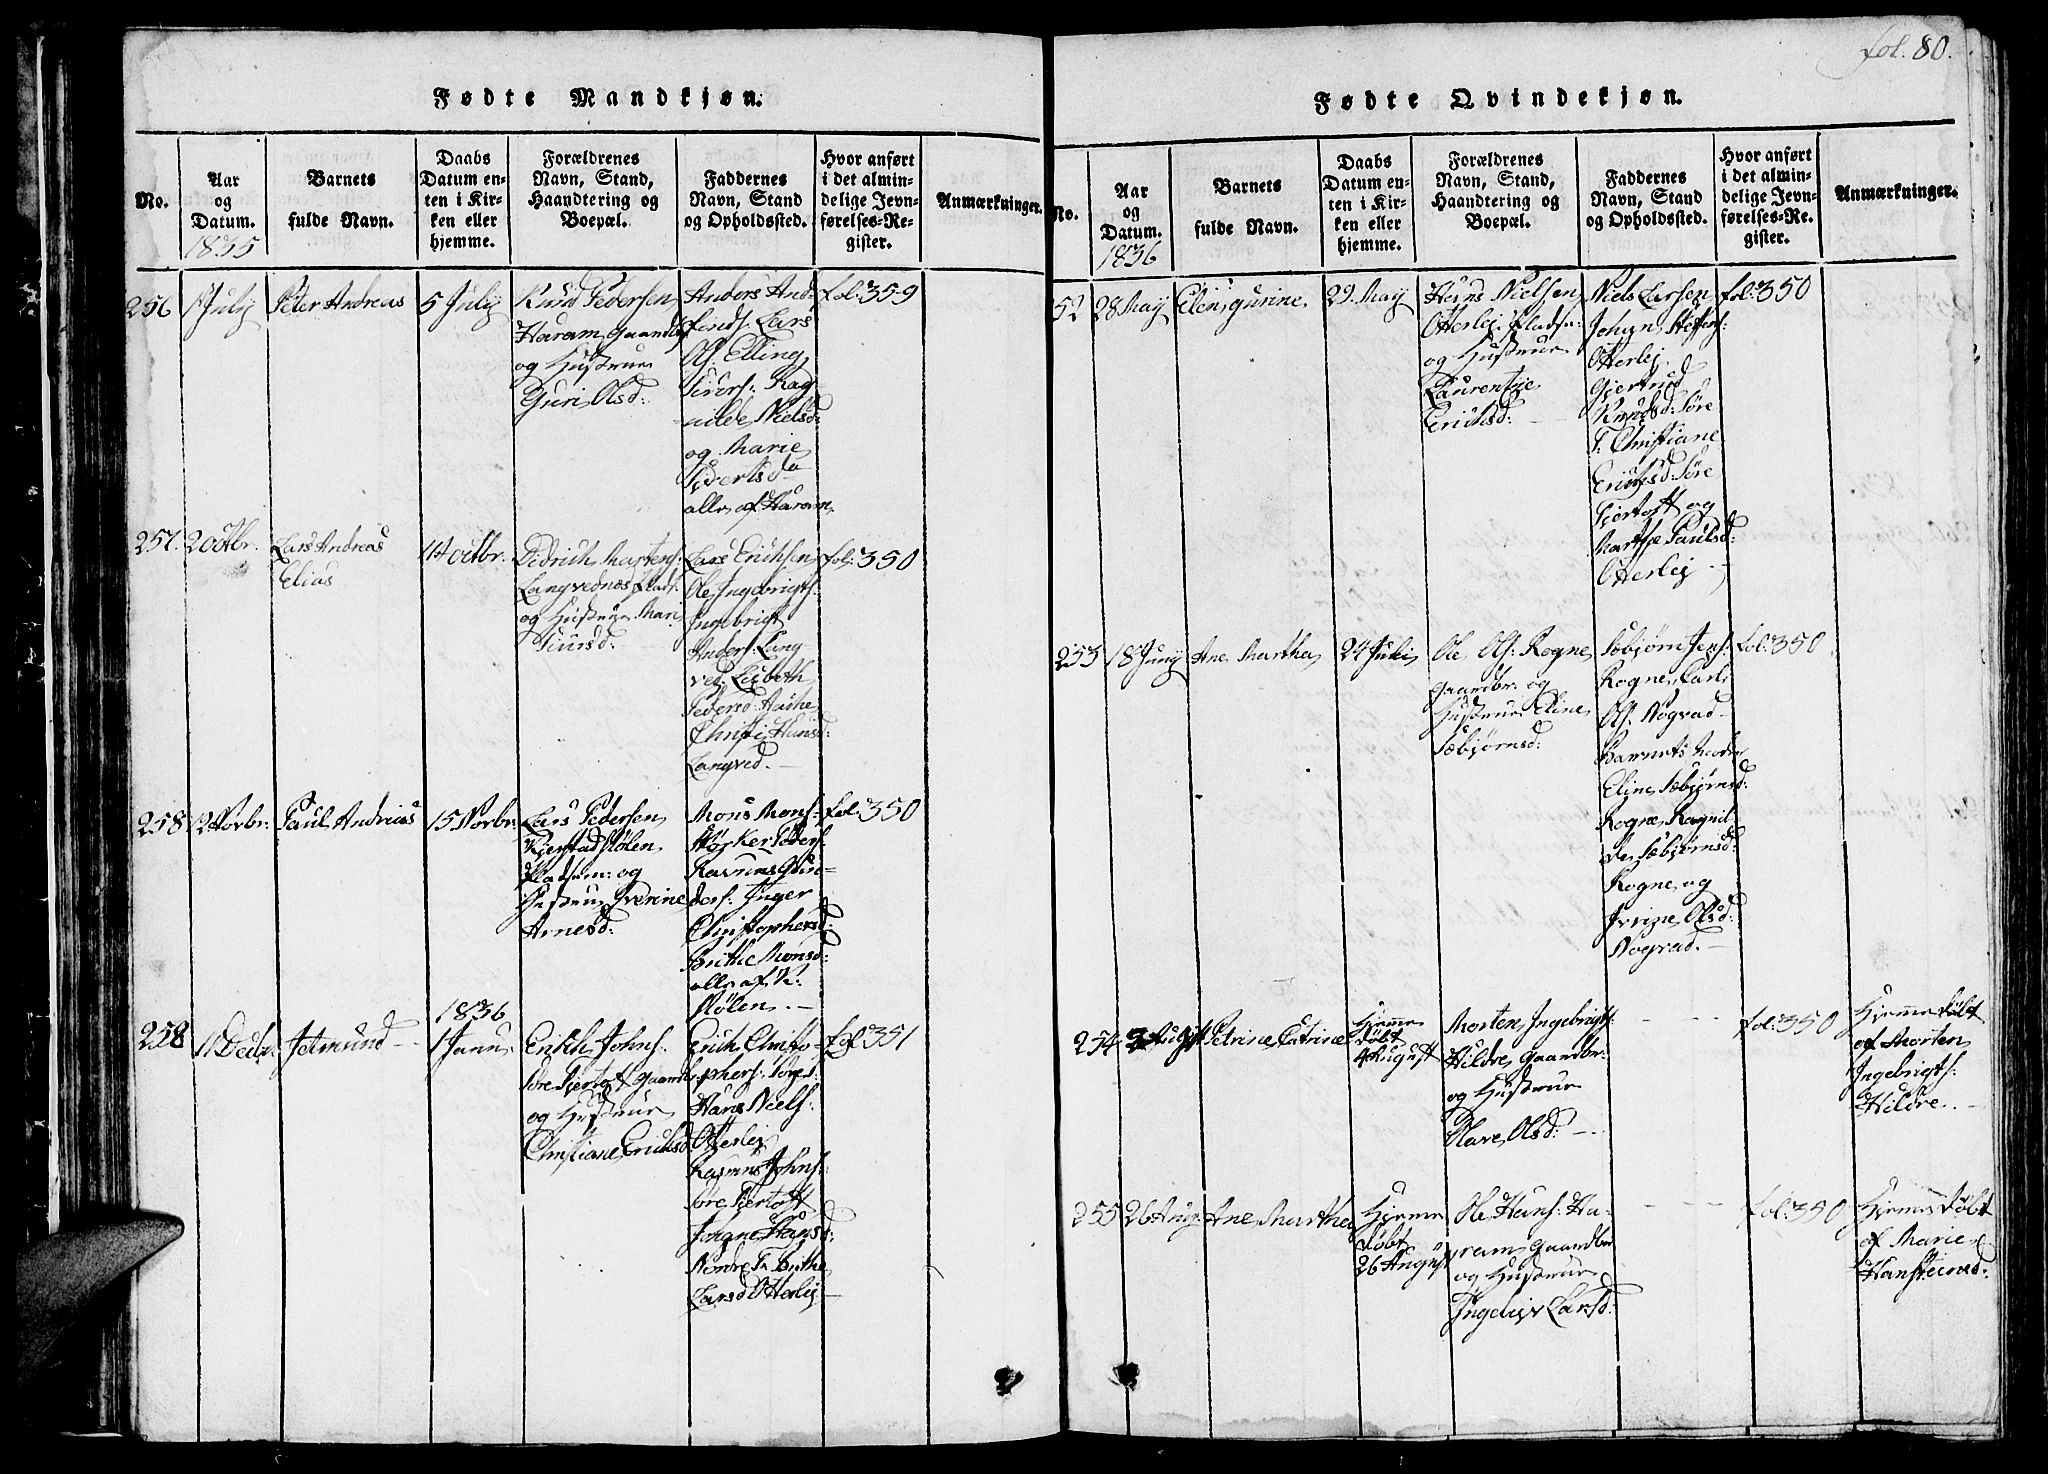 fol. 80.
Fødte Mandkjøn.
No.
Aar
og
Datum.
1835
Barnets
fulde Navn.
Daabs
Datum en-
ten i Kir-
ken eller
hjemme.
Forældrenes
Navn, Stand,
Haandtering og
Boepæl.
Faddernes
Navn, Stand
og Opholdssted.
Hvor anført
i det almin-
delige Jevn-
førelses-Re-
gister.
Anmærkninger.
256
1 July
Peter Andreas
5 July
Knud Pedersen
Haram Gaardb
og Hustrue
Guri Olsd:
Anders And-
Lars
Ols: Elling
Ivers: Rag
nilde Nielsd:
og Marie
Sivertsd
alle af Haram
fol: 359
257.
2 Octbr.
Lars Andreas
Elias
11 Octbr.
Didrich Mortens:
Langvednes Plads:
og Hustrue Mari
Lars Erichsen
Ole Ingebrigts:
Ingebrigt
Anders: Lang
ved. Lisbeth
Pedersd:
Christi Hansd:
Langved. —
fol: 350
258
12 Novbr:
Paul Andreas
15 Novbr:
Lars Pedersen
Kjerstadstølen
Pladsem: og
Hustrue Sverine
Arnesd:
Mons Mons:
Peders:
Rasmus Gun-
ders: Inger
Christophersd:
Brithe Monsd:
alle af K:
Stølen. —
fol: 350
258
11 Decbr
Jetmund —
1836
1 Janu.
Erich Johns:
Søre Fjertoft Gaardb
og Hustrue
Christiane Erichsd
Erich Christo-
phers:
Hans Niels:
Otterlei
Rasmus Johns:
Søre Fjertoft
Johane Hansd:
Nordre F. Brithe
Larsd Otterlej —
fol 351
Fødte Qvindekjøn.
No.
Aar
og
Datum.
1836
Barnets
fulde Navn.
Daabs
Datum en-
ten i Kir-
ken eller
hjemme.
Forældrenes
Navn, Stand,
Haandtering og
Boepæl.
Faddernes
Navn, Stand
og Opholdssted.
Hvor anført
i det almin-
delige Jevn-
førelses-Re-
gister.
Anmærkninger.
252
28 May
Elen Gurine
29. May
Hans Nielsen
Otterlej Pladsm:
og Hustrue
Laurentse
Erichsd: —
Niels Larsen
Johan Steffens:
Otterlej
Gjertrud
Knudsd: Søre
F. Christiane
Erichsd: Søre
Fjertoft og
Marthe Paulsd:
Otterlej —
fol: 350
253
18 Juny
Ane Martha
24 Juli
Ole Ols: Rogne
Gaardbr: og
Hustrue Eline
Sæbjørnsd:
Sæbjørn Jens:
Rogne, Carl
Ols: Nogvad
Barnets Moder
Eline Sæbjørnsd:
Rogne, Ragnil-
de Sæbjørnsd:
Rogne, og
Olsd:
Nogvad. —
fol: 350
254
3 August
Petrine Catrine
Hjeme
døbt
4 August
Morten Ingebrigts:
Hildre, Gaardbr:
og Hustrue
Olave Olsd: —
fol: 350
Hjeme døbt
af Morten
Ingebrigts:
Hildre. —
255
26 Aug:
Ane Martha
Hjeme
døbt
26 August
Ole Hans: Ha-
ram Gaardbr
og Hustrue
Ingeleiv Larsd:
fol: 350
Hjeme døbt
af Marie
Hansteinsd: